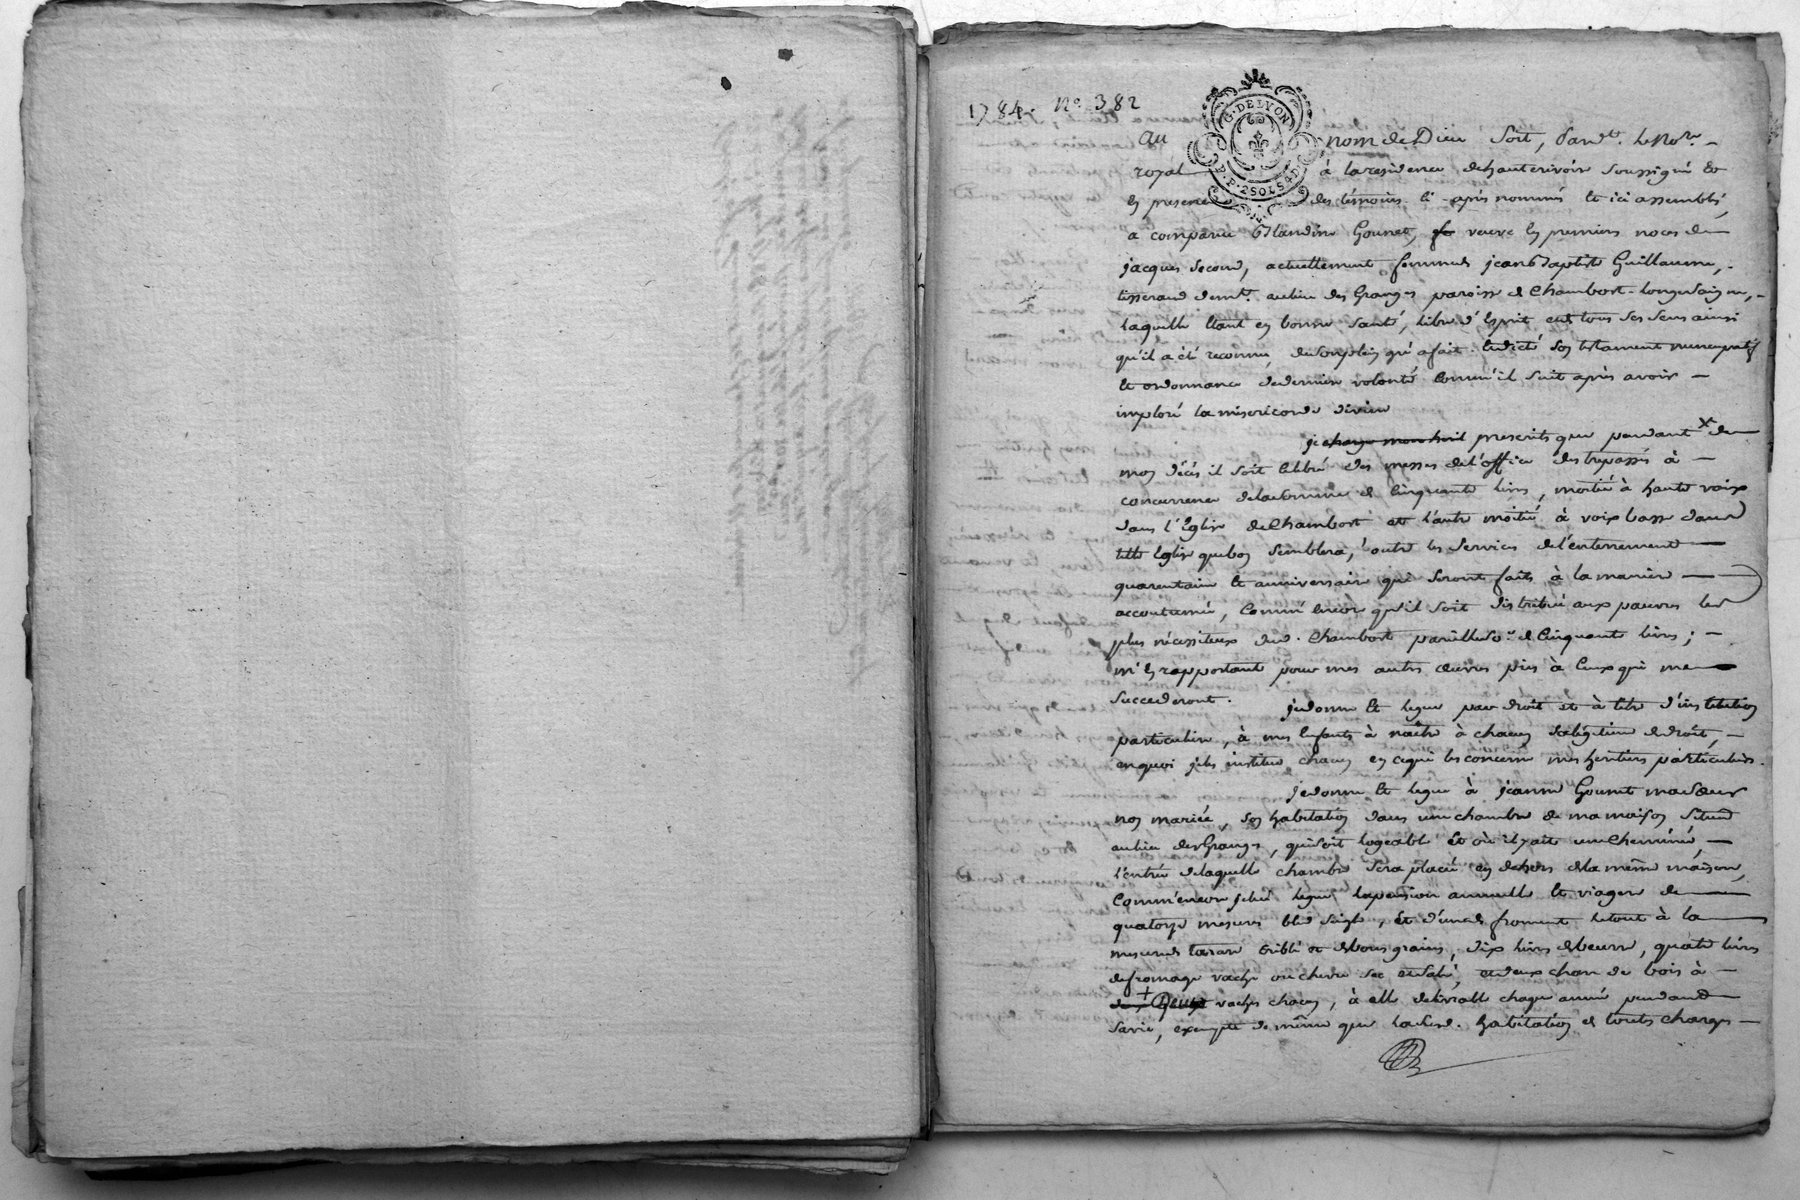 1784. N.º 382
G. DE LYON
P. 2 SOLS 4 D
au nom de Dieu soit, pard.t le No.re
royal à la residence de hauterivoire soussigné et
en presence des témoins ci-après nommés et ici assemblés,
a comparu Blandine Gounet, veuve en premieres noces de
jacques Second, actuellement femme de jean Baptiste Guillaume,
tisserand dem.t au lieu des Granges paroisse de Chambort-longesaigne,
laquelle etant en bonne santé, libre d'Esprit et de tous ses sens ainsi
qu'il a été reconnu, de son plein gré a fait et dicté son testament nuncupatif
et ordonnance de derniere volonté comm'il suit après avoir
imploré la misericorde divine
je charge mon herit prescrits que pendant x de
mon décés il soit célébré des messes de l'office des trepassés à
concurrence de la somme de cinquante livres, moitié à haute voix
dans l'Eglise de Chambort et l'autre moitié à voix basse dans
telle Eglise que bon semblera, outre les services de l'enterrement
quarentaine et anniversaire qui seront faits à la maniere
accoutumée, comm'encor qu'il soit distribué aux pauvres les
plus nécessiteux dud. Chambort pareille so.e de cinquante livres;
m'en rapportant pour mes autres œuvres pies à ceux qui me
succederont.
je donne et legue par droit et à titre d'institution
particuliere, à mes enfants à naitre à chacun sa légitime de droit,
en quoi je les institue chacun en ce qui les concerne mes heritiers particuliers.
je donne et legue à jeanne Gounet ma sœur
non mariée, son habitation dans une chambre de ma maison située
au lieu des Granges, qui soit logeable et où il y ait une cheminée,
l'entrée de laquelle chambre sera placée en dehors de la même maison,
comm'encore je lui legue la pension annuelle et viagere de
quatorze mesures bled seigle, et d'une de froment le tout à la
mesure de tarare criblé et de bons grains, dix livres de beurre, quatre livres
de fromage vache ou chevre sec et salé, et deux chars de bois à
deux vaches chacun, à elle delivrable chaque année pendant
sa vie, exempte de même que lad. habitation de toutes charges